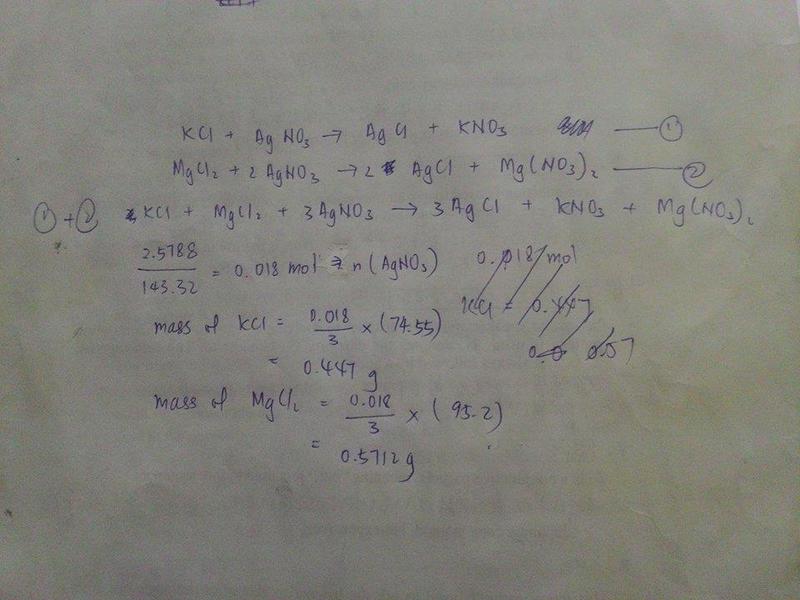 KCl + AgNO₃ → AgCl + KNO₃ —— ①
MgCl₂ + 2 AgNO₃ → 2 AgCl + Mg(NO₃)₂ —— ②
① + ② KCl + MgCl₂ + 3AgNO₃ → 3AgCl + KNO₃ + Mg(NO₃)₂
2.5788 / 143.32 = 0.018 mol → n (AgNO₃) 0.018 mol
KCl = 0.447
mass of KCl = 0.018 / 3 × (74.55)
0.57
= 0.447 g
mass of MgCl₂ = 0.018 / 3 × (95.2)
= 0.5712 g